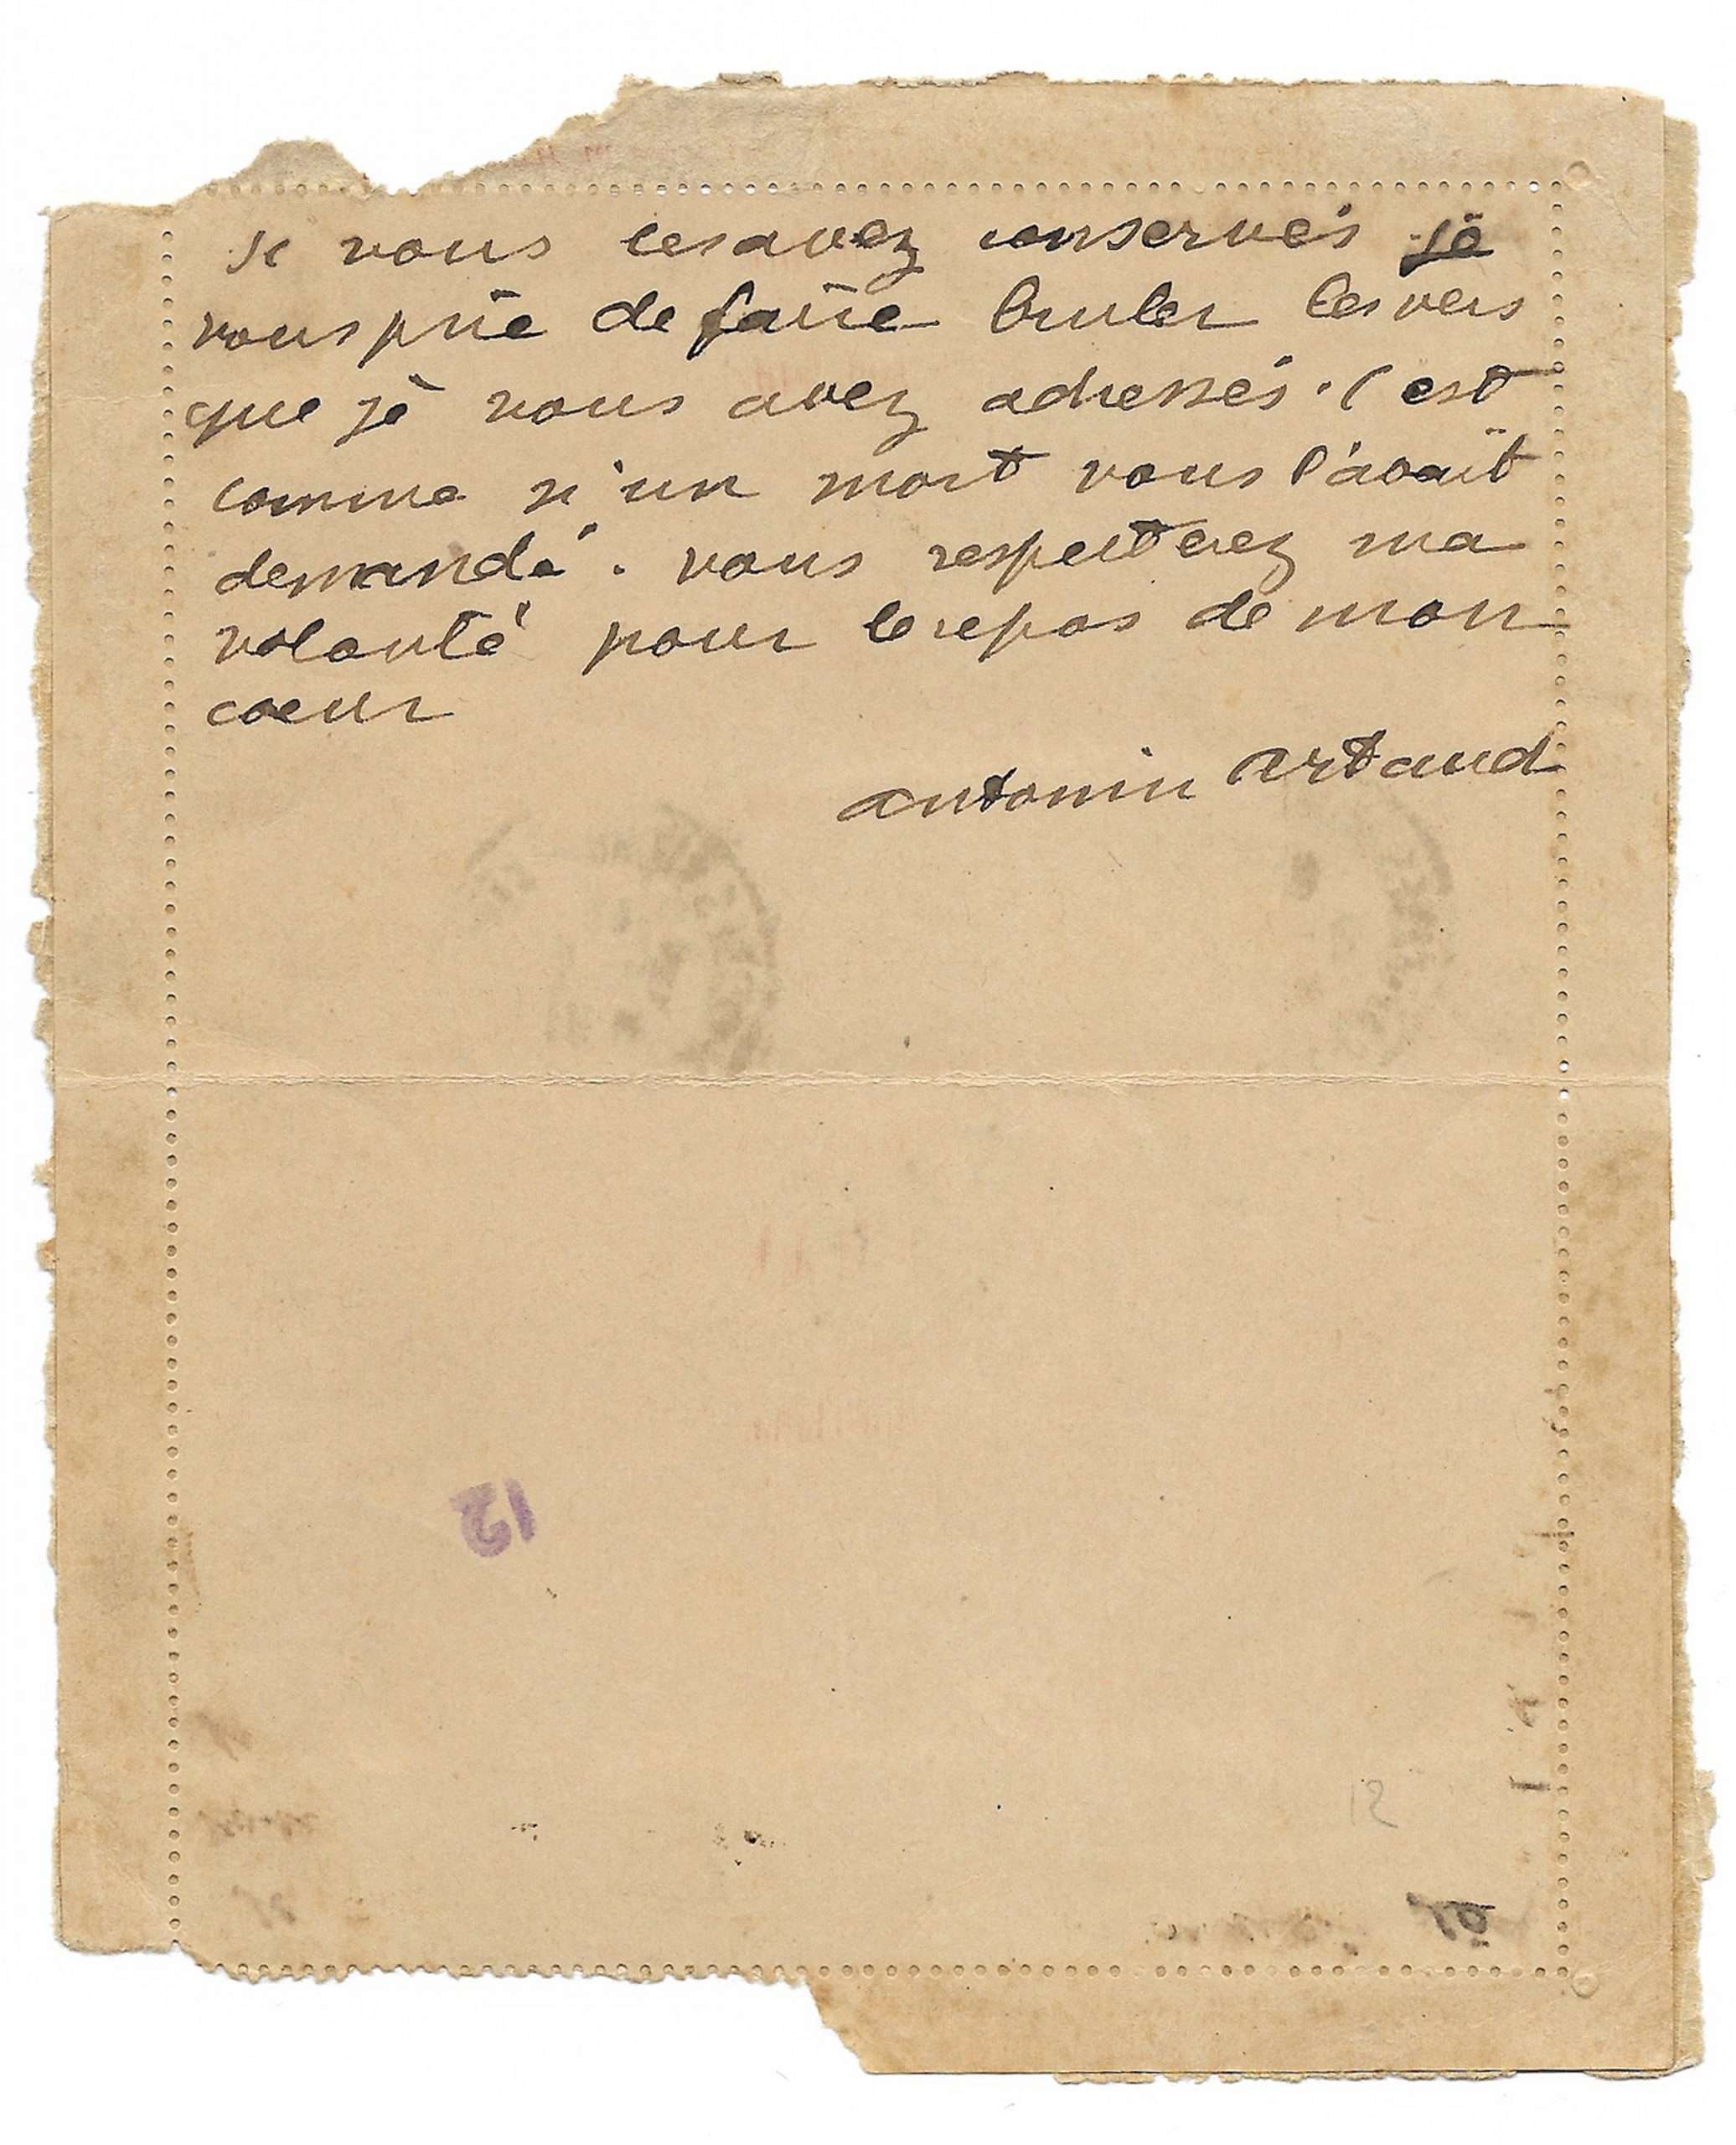 Si vous les avez conservés je
vous prie de faire bruler les vers
que je vous avez adressés. C'est
comme si un mort vous l'avait
demandé. vous respecterez ma
volonté pour le repos de mon
coeur
antonin artaud
12
12